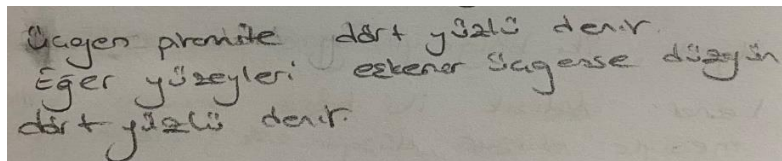 üçgen piramite dört yüzlü denir.
Eğer yüzeyleri eşkenar üçgense düzgün
dört yüzlü denir.